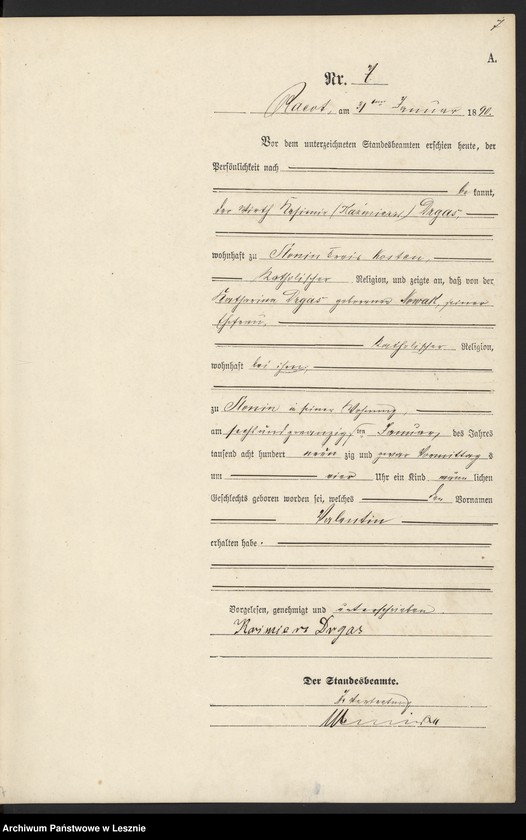 7
A.
Nr. 7
Racot, am 31ten Januar 1890.
Vor dem unterzeichneten Standesbeamten erschien heute, der
Persönlichkeit nach
be kannt,
der Wirth Kasimir (Kazmierz) Drgas,
wohnhaft zu Slonin Kreis Kosten,
katholischer Religion, und zeigte an, daß von der
Katharina Drgas geborenen Nowak, seiner
Ehefrau,
katholischer Religion,
wohnhaft bei ihm,
zu Slonin in seiner Wohnung,
am sechsundzwanzigsten Januar, des Jahres
tausend acht hundert neun zig und zwar Vormittag s
um vier Uhr ein Kind männ lichen
Geschlechts geboren worden sei, welches den Vornamen
Valentin
erhalten habe.
Vorgelesen, genehmigt und unterschrieben
Kazimierz Drgas
Der Standesbeamte.
In Vertretung
Archiwum Państwowe w Lesznie